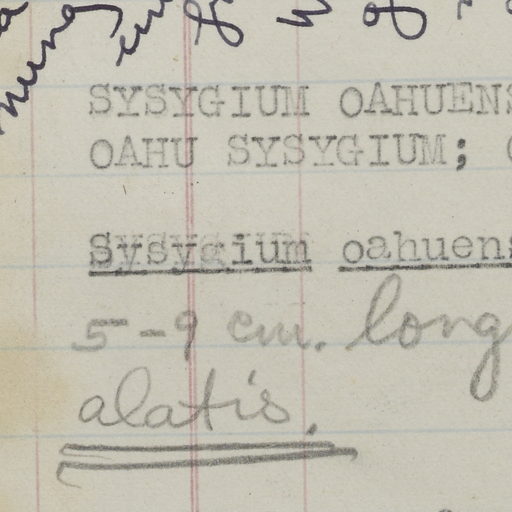 SYSYGIUM OAHUENS
OAHU SYSYGIUM;
Sysygium oahuens
5-9 cm. long
alatis.